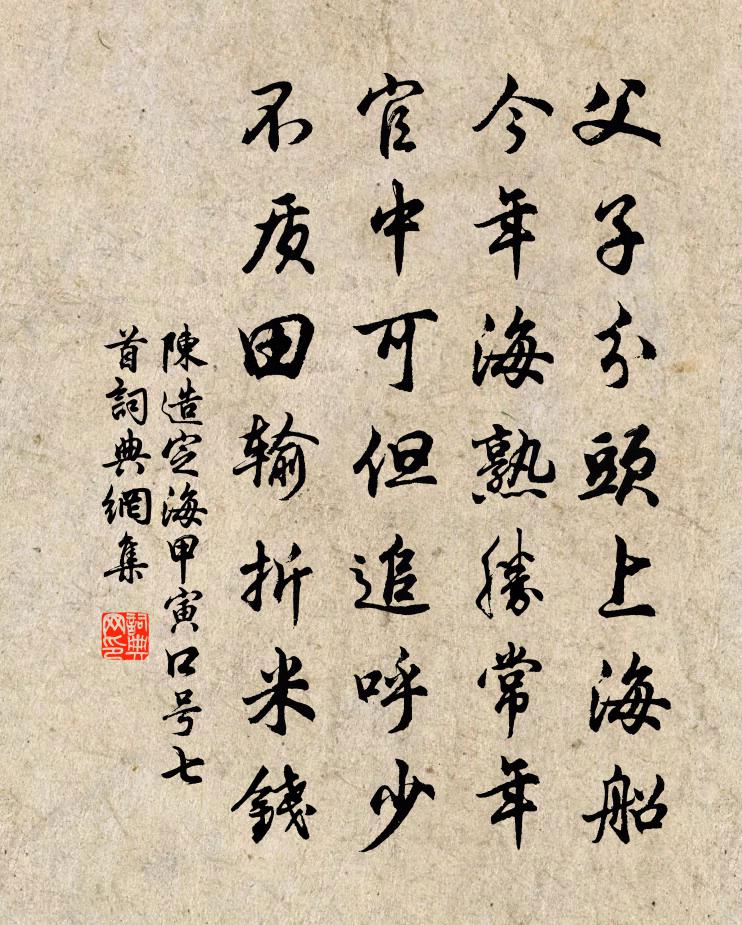 父子分頭上海船
今年海熟勝常年
官中可但追呼少
不质田输折米錢
陳造定海甲寅口号七
首詞典網集
詞典
网印